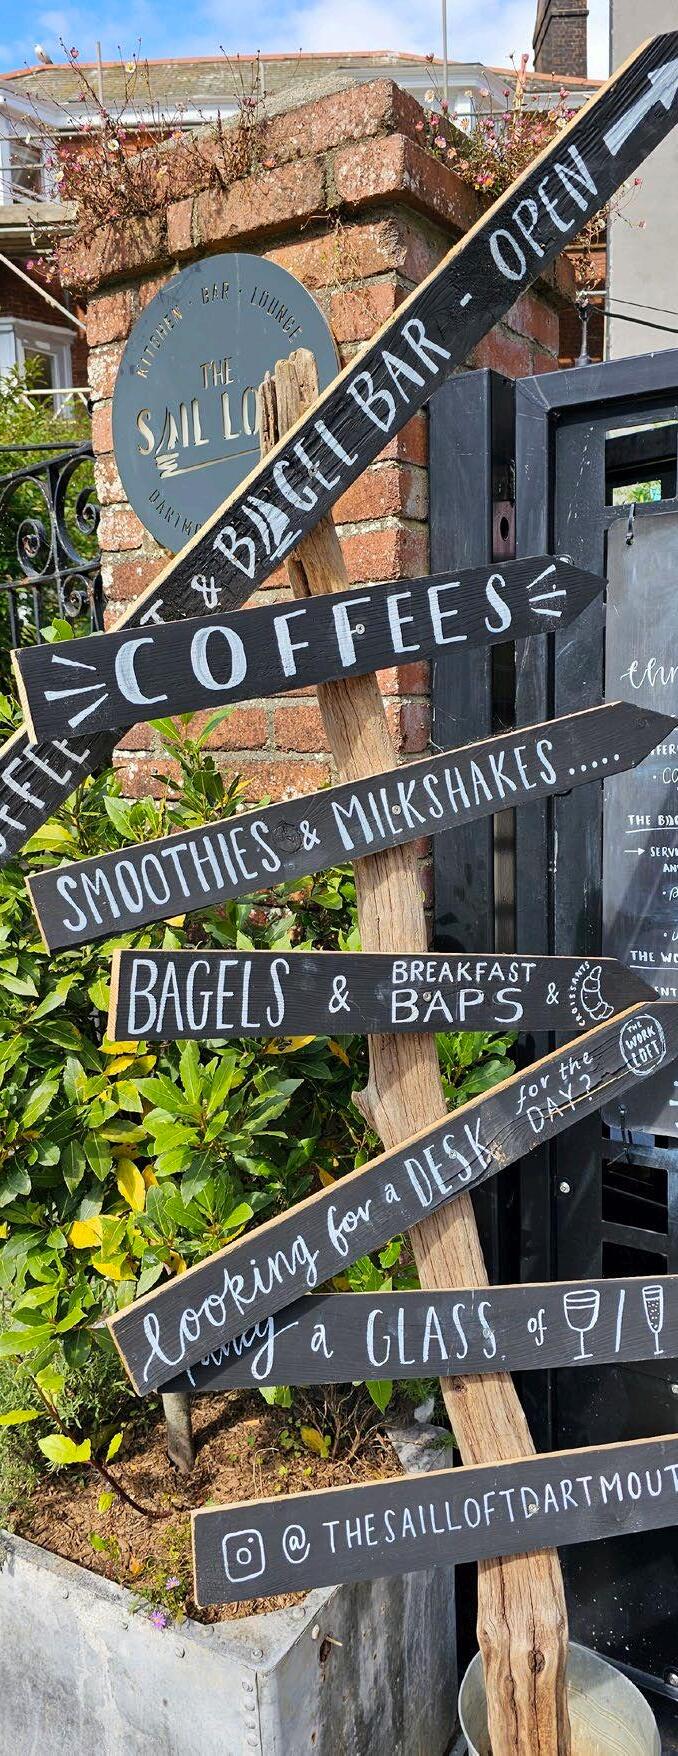 KITCHEN · BAR · LOUNGE
THE
SAIL LO
DARTM
COFFEE & BAGEL BAR - OPEN
COFFEES
SMOOTHIES & MILKSHAKES.....
BAGELS & BREAKFAST BAPS & CROISSANTS
looking for a DESK for the DAY? THE WORK LOFT
fancy a GLASS of /
@THESAILLOFTDARTMOUT
THE BAG
THE WO